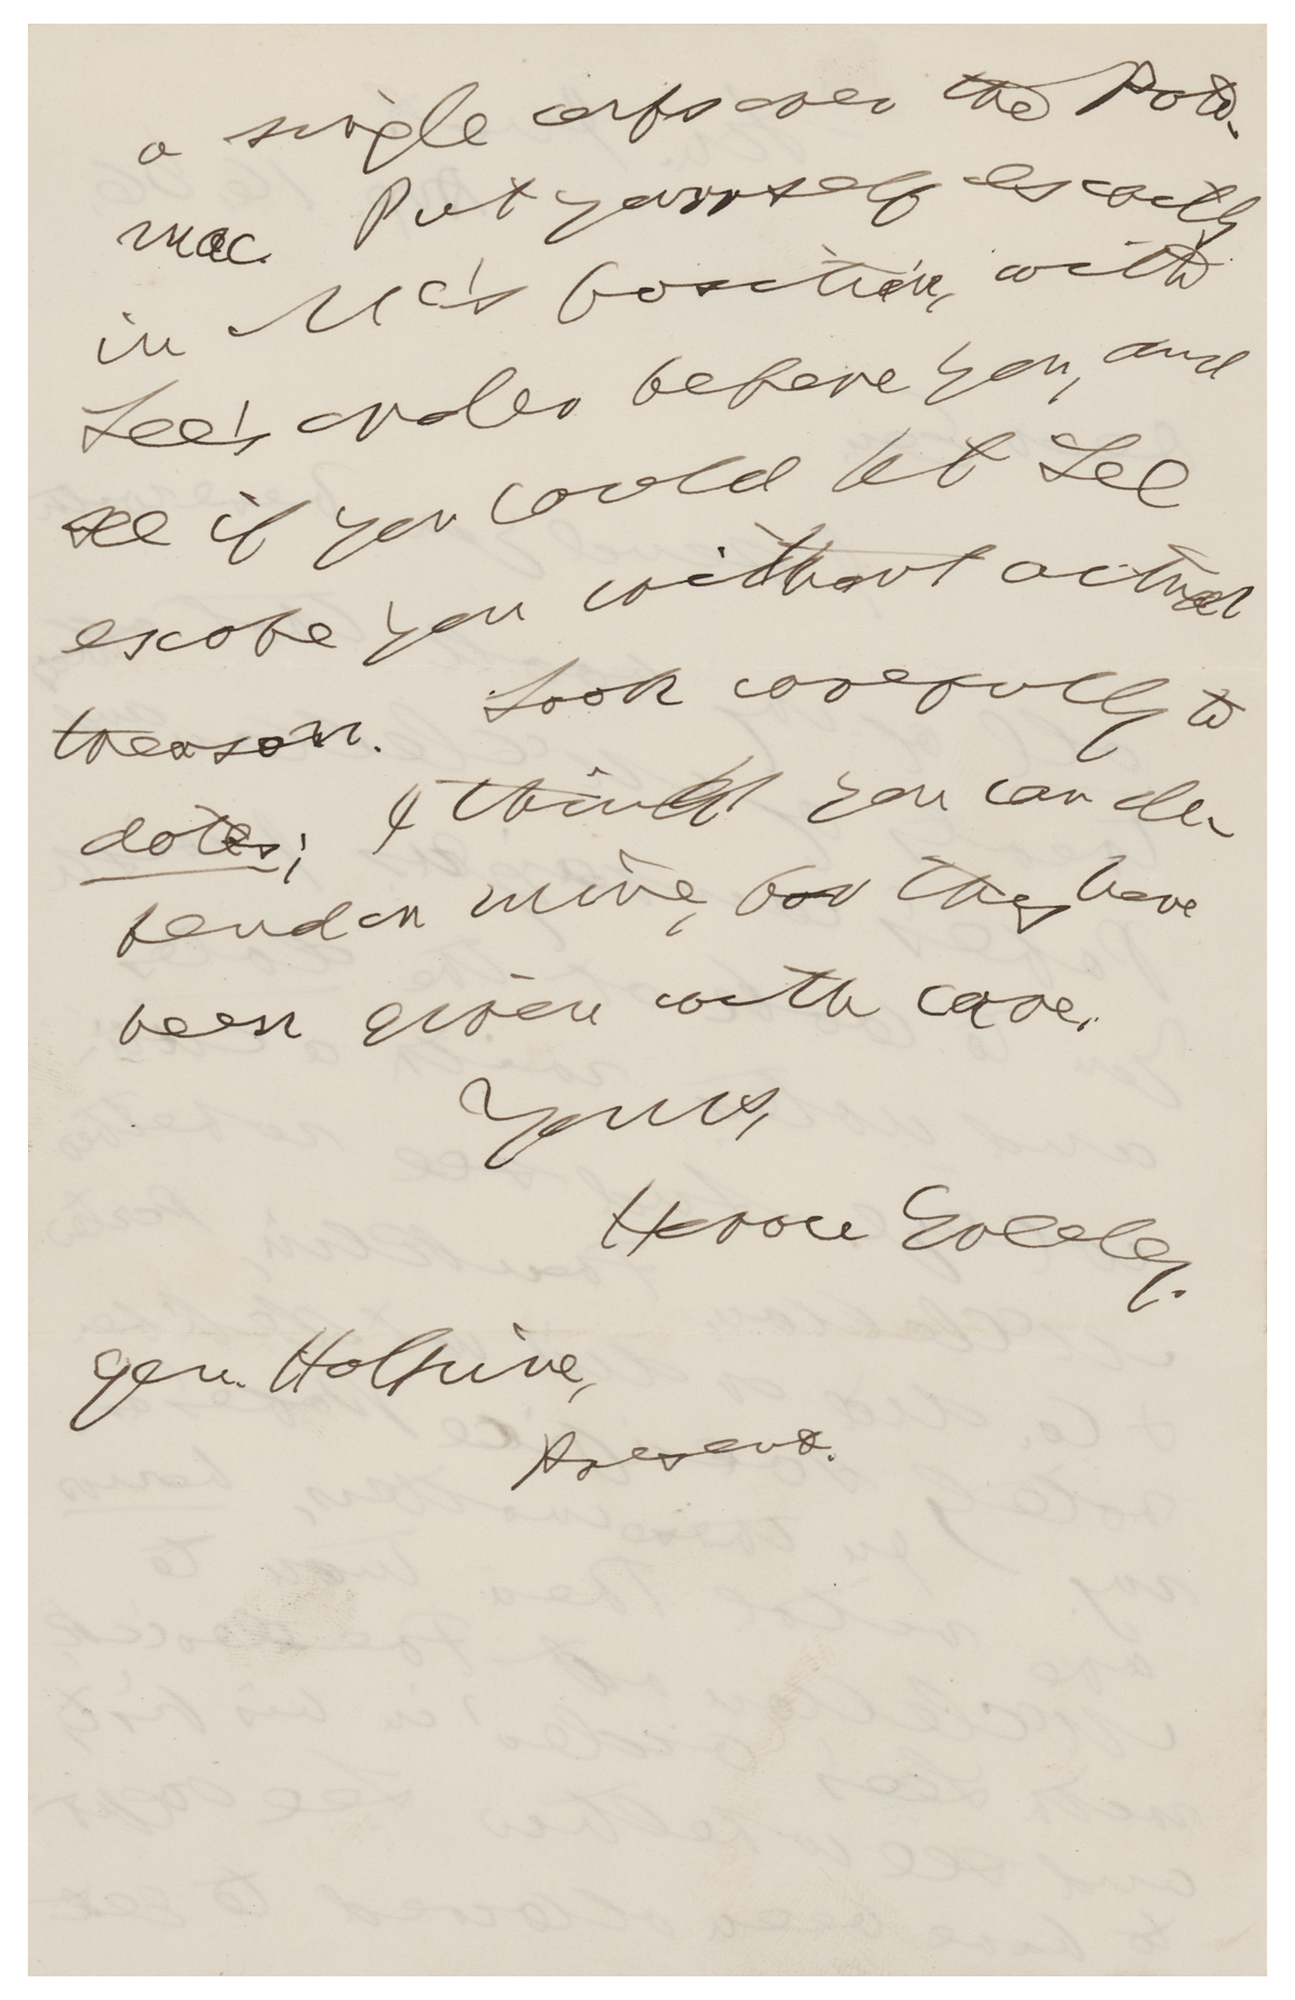 a single corps over the Poto-
mac. Put yourself exactly
in Mc's position, with
Lee's order before you, and
see if you could let Lee
escape you without actual
treason. Look carefully to
dates; I think you can de-
pend on mine, for they have
been given with care.
Yours,
Horace Greeley.
Gen. Halpine,
Present.